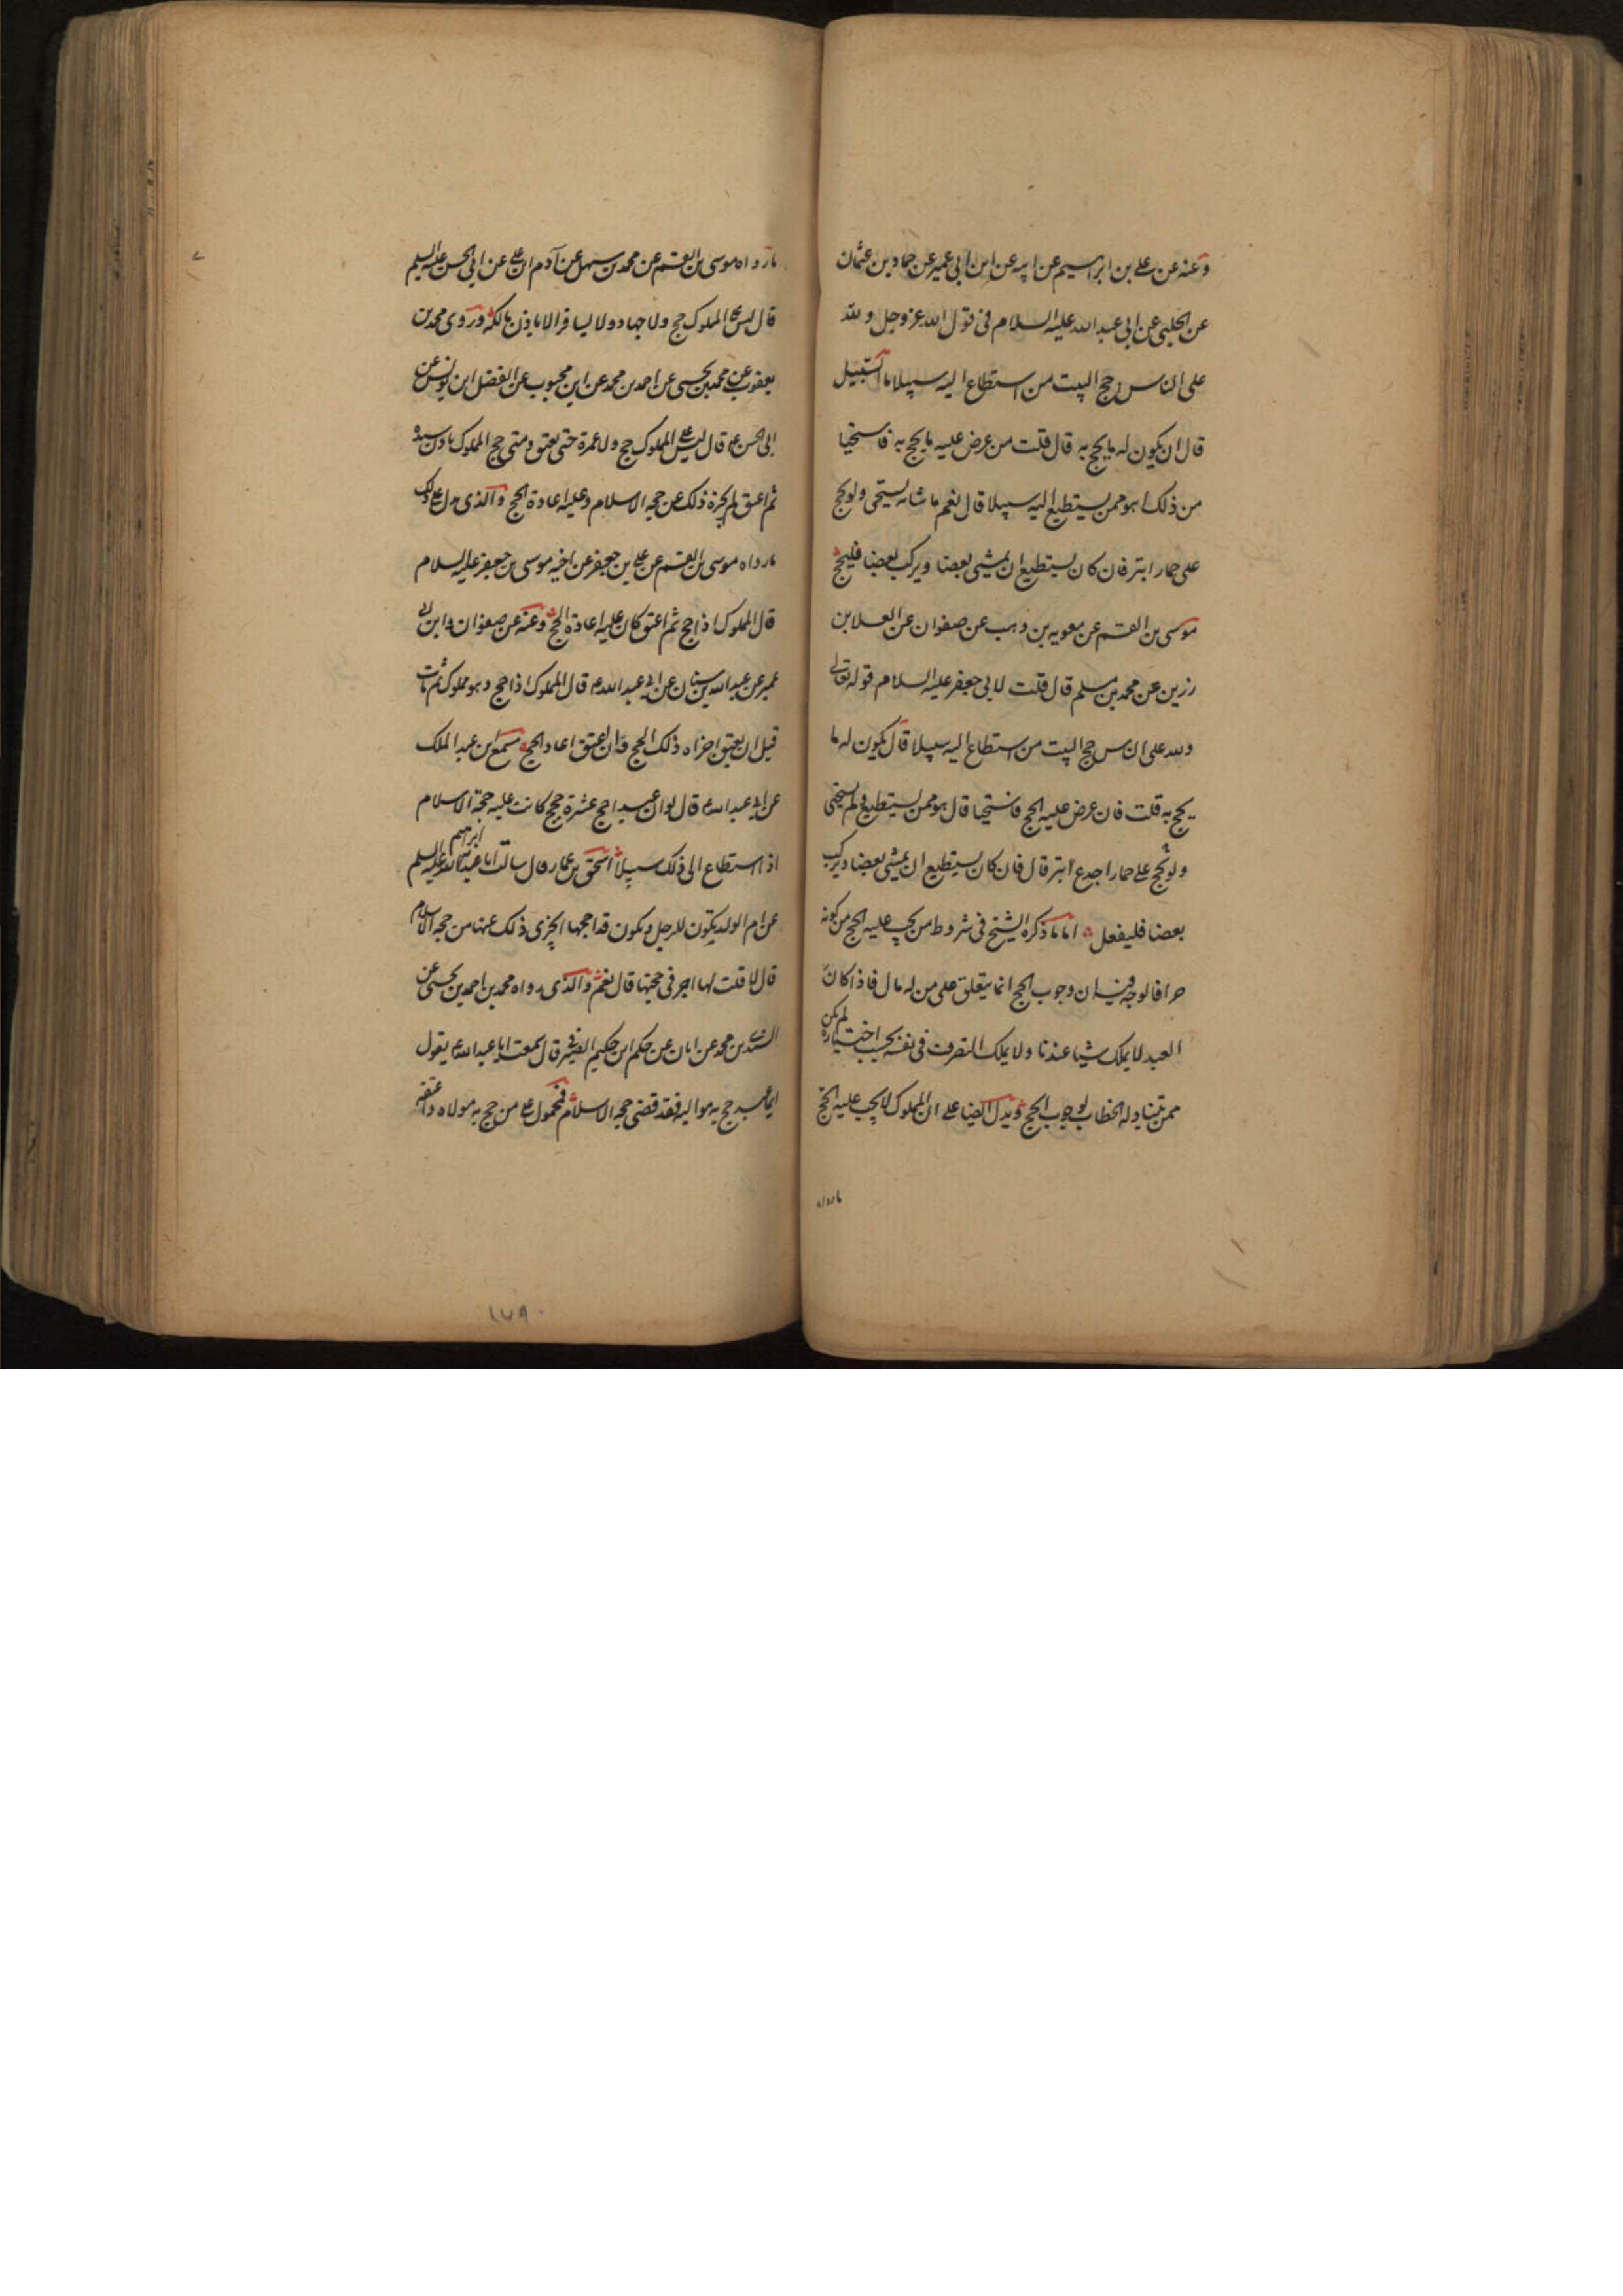 وعنه عن علي بن ابراهيم عن ابيه عن ابن ابي عمير عن حماد بن عثمان
عن الحلبي عن ابي عبد الله عليه السلام في قول الله عز وجل ولله
على الناس حج البيت من استطاع اليه سبيلا ما السبيل
قال ان يكون له ما يحج به قال قلت من عرض عليه ما يحج به فاستحيا
من ذلك اهو ممن يستطيع اليه سبيلا قال نعم ما شانه يستحيي ولو يحج
على حمار ابتر فان كان يستطيع ان يمشي بعضا ويركب بعضا فليحج
موسى بن القسم عن معويه بن وهب عن صفوان عن العلا بن
رزين عن محمد بن مسلم قال قلت لابي جعفر عليه السلام قوله تعالى
ولله على الناس حج البيت من استطاع اليه سبيلا قال يكون له ما
يحج به قلت فان عرض عليه الحج فاستحيا قال هو ممن يستطيع ولم يستحيي
ولو يحج على حمار اجدع ابتر قال فان كان يستطيع ان يمشي بعضا ويركب
بعضا فليفعل اما ما ذكره الشيخ في شروط من يجب عليه الحج من كونه
حرا فالوجه فيه ان وجوب الحج انما يتعلق على من له مال فاذا كان
العبد لا يملك شيا عندنا ولا يملك التصرف في نفسه بحسب اختياره لم يكن
ممن يتناوله الخطاب لوجوب الحج ويدل ايضا على ان المملوك لا يجب عليه الحج
مارواه
مارواه موسى بن القسم عن محمد بن سهل عن آدم بن علي عن ابي الحسن عليه السلم
قال ليس على المملوك حج ولا جهاد ولا يسافر الا باذن مالكه وروى محمد بن
يعقوب عن محمد بن يحيى عن احمد بن محمد عن ابن محبوب عن الفضل ابن يونس عن
ابي الحسن ع قال ليس على المملوك حج ولا عمرة حتى يعتق ومتى حج المملوك باذن سيده
ثم اعتق لم يجزه ذلك عن حجه الاسلام وعليه اعادة الحج والذي يدل على ذلك
مارواه موسى بن القسم عن علي بن جعفر عن اخيه موسى بن جعفر عليه السلام
قال المملوك اذا حج ثم اعتق كان عليه اعادة الحج وعنه عن صفوان وابن ابي
عمير عن عبد الله بن سنان عن ابي عبد الله ع قال المملوك اذا حج وهو مملوك ثم مات
قبل ان يعتق اجزاه ذلك الحج فان اعتق اعاد الحج مسمع ابن عبد الملك
عن ابي عبد الله ع قال لو ان عبدا حج عشرة حجج كانت عليه حجة الاسلام
اذا استطاع الى ذلك سبيلا اسحق بن عمار قال سالت ابا ابراهيم عليه السلم
عن ام الولد يكون للرجل ويكون قد احجها ايجزي ذلك عنها من حجه الاسلام
قال لا قلت لها اجر في حجتها قال نعم والذي رواه محمد بن احمد بن يحيى عن
السندي بن محمد عن ابان عن حكم ابن حكيم الصيرفي قال سمعت ابا عبد الله ع يقول
ايما عبد حج به مواليه فقد قضى حجه الاسلام فمحمول على من حج به مولاه واعتقه